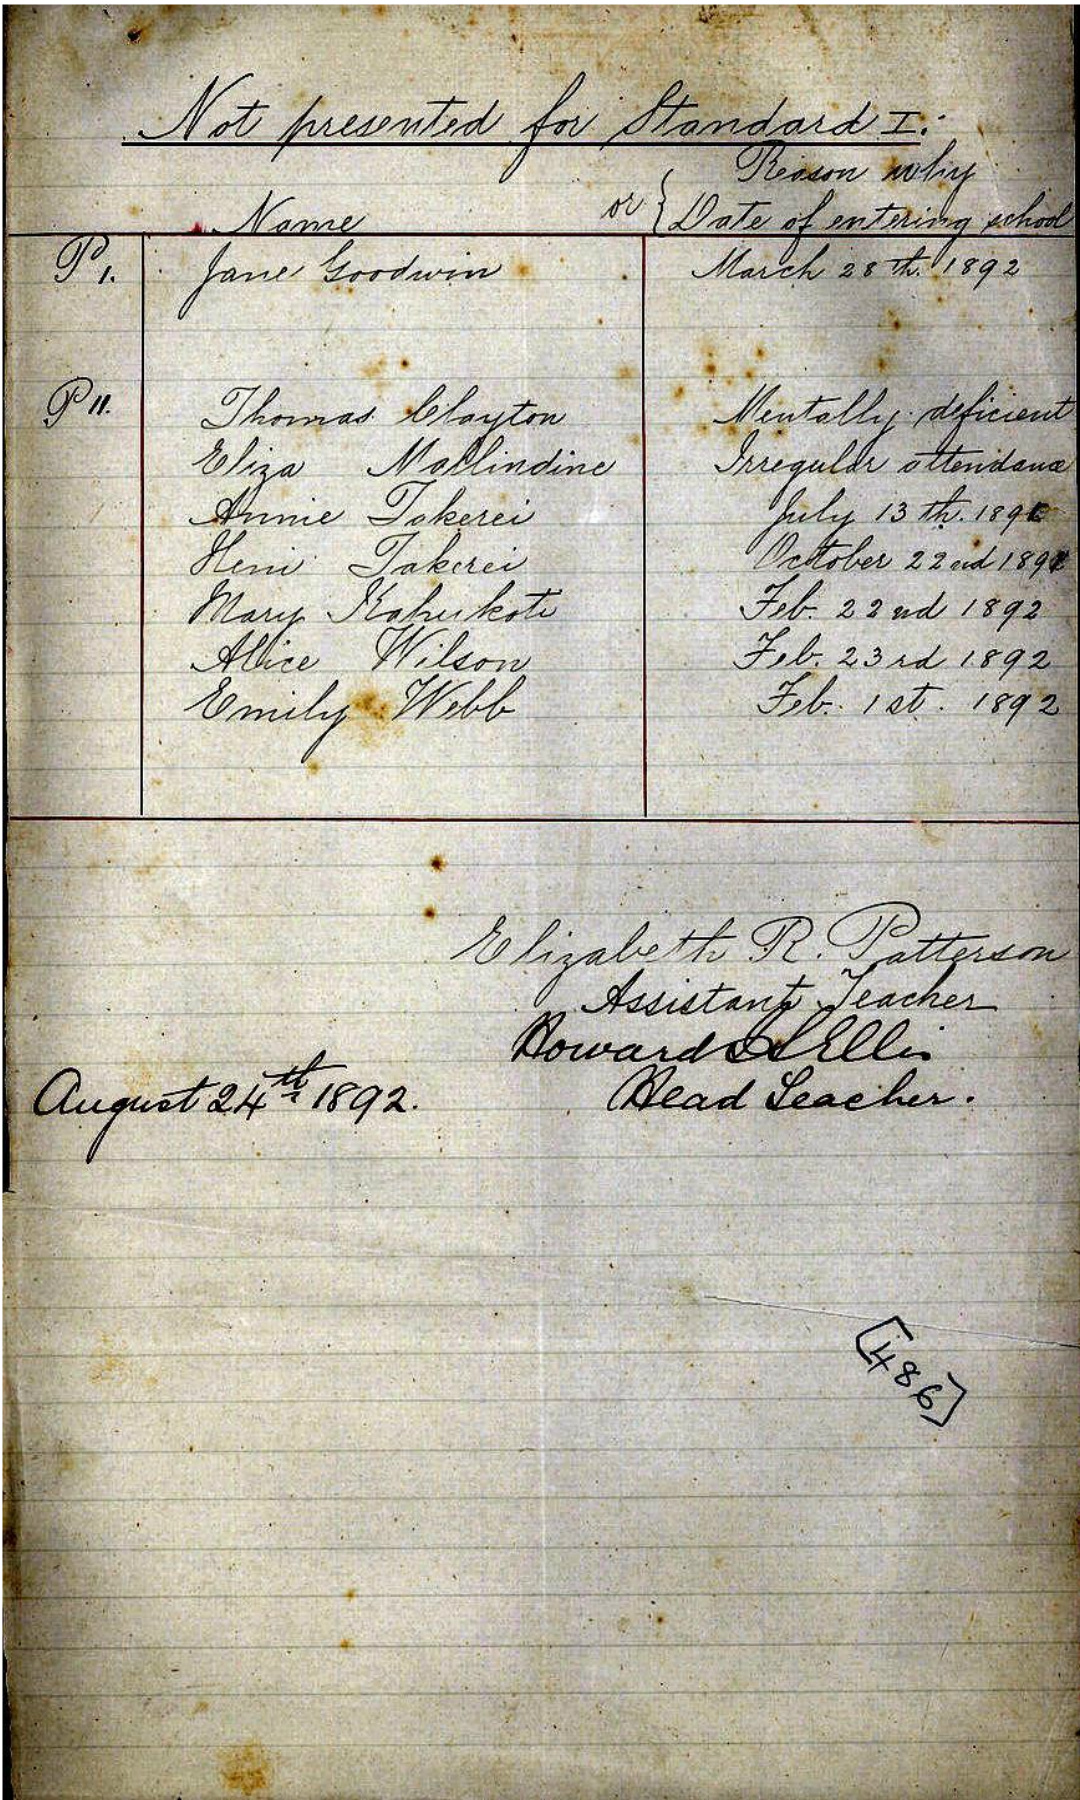 Not presented for Standard I.
Reason why
Name or { Date of entering school
P I. Jane Goodwin March 28th. 1892
P II. Thomas Clayton Mentally deficient
Eliza Mallindine Irregular attendance
Annie Takerei July 13th. 1891
Heni Takerei October 22nd 1891
Mary Kahukoti Feb. 22nd 1892
Alice Wilson Feb. 23rd 1892
Emily Webb Feb. 1st. 1892
Elizabeth R. Patterson
Assistant Teacher
Howard Ellis
August 24th 1892. Head Teacher.
[486]